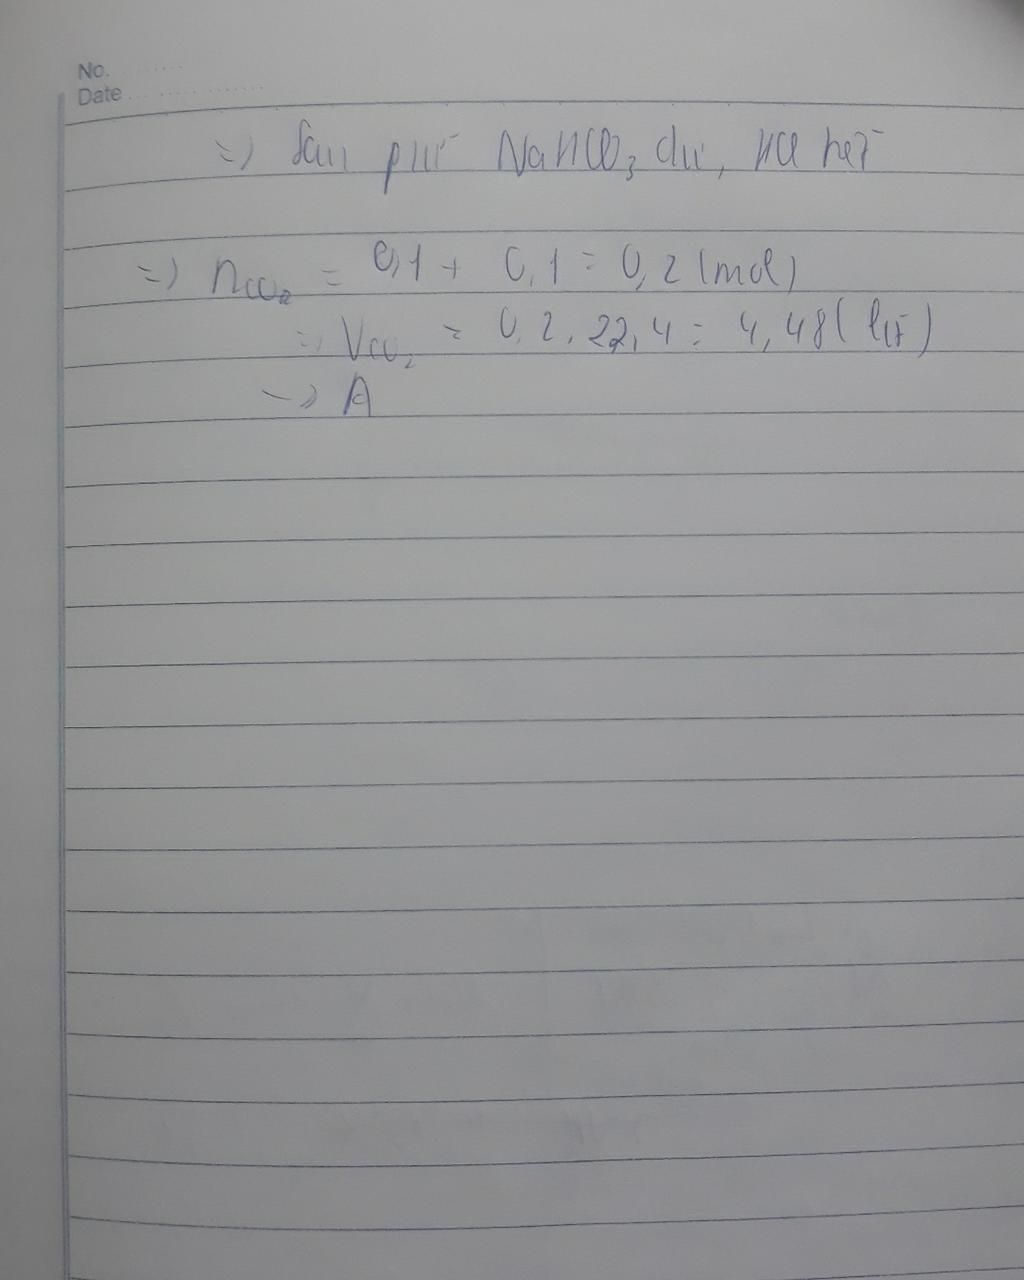 No.
Date
=> Sau pứ NaHCO3 dư, HCl hết
=> nCO2 = 0,1 + 0,1 = 0,2 (mol)
=> VCO2 = 0,2.22,4 = 4,48 (lít)
-> A